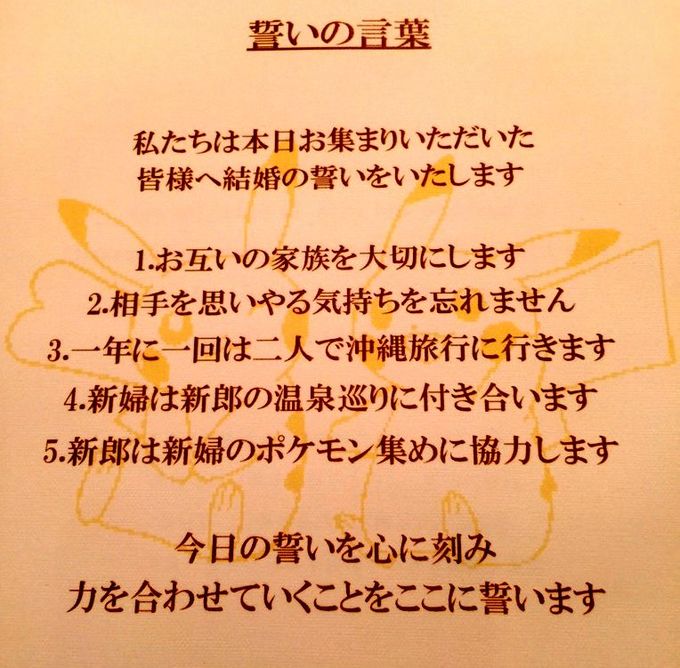 誓いの言葉
私たちは本日お集まりいただいた
皆様へ結婚の誓いをいたします
1.お互いの家族を大切にします
2.相手を思いやる気持ちを忘れません
3.一年に一回は二人で沖縄旅行に行きます
4.新婦は新郎の温泉巡りに付き合います
5.新郎は新婦のポケモン集めに協力します
今日の誓いを心に刻み
力を合わせていくことをここに誓います